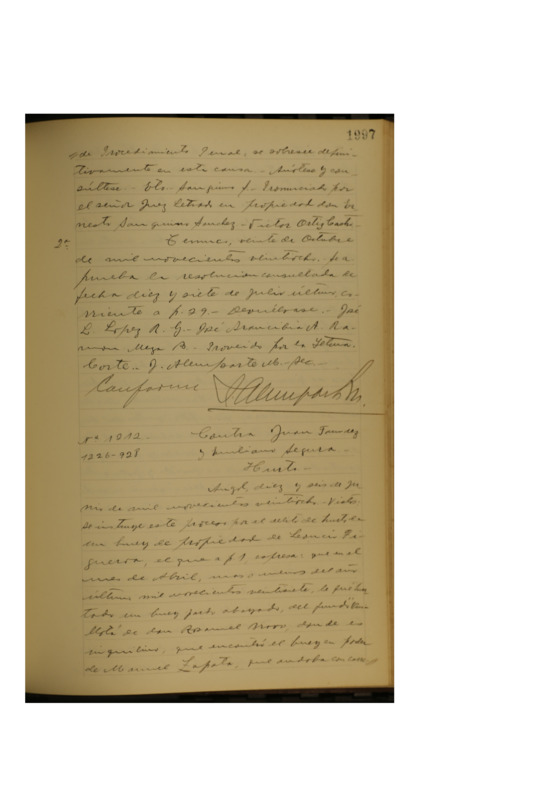 1997
de Procedimiento Penal, se sobresee defini-
tivamente en esta causa. Anótese y con-
súltese. Sanquines J. Pronunciada por
el señor Juez letrado en propiedad don Er-
nesto Sanquines Sanchez. Victor
2ª Temuco, veinte de Octubre
de mil novecientos veintiocho. Se a-
prueba la resolucion consultada de
fecha diez y siete de Julio último, co-
rriente a f. 29. Devuélvase. José
L. Lopez R. G. José Arancibia A. Ra-
mon Meza B. Proveido por la Iltma.
Corte. J. Alemparte M. Sec.
Conforme J Alemparte M.
Nº 1212. Contra Juan
1226-928 y Emiliano Segura.
Hurto
Angol, diez y seis de Ju-
nio de mil novecientos veintiocho. Vistos:
Se instruye este proceso por el delito de hurto de
un buey de propiedad de Leoncio Fi-
gueroa, el que a f 1, expresa: que en el
mes de Abril, mas o menos del año
último mil novecientos veintisiete, le fué hur-
tado un buey pardo del fundo
de don donde es
inquilino, que encontró el buey en poder
de Manuel Zapata, que andaba con